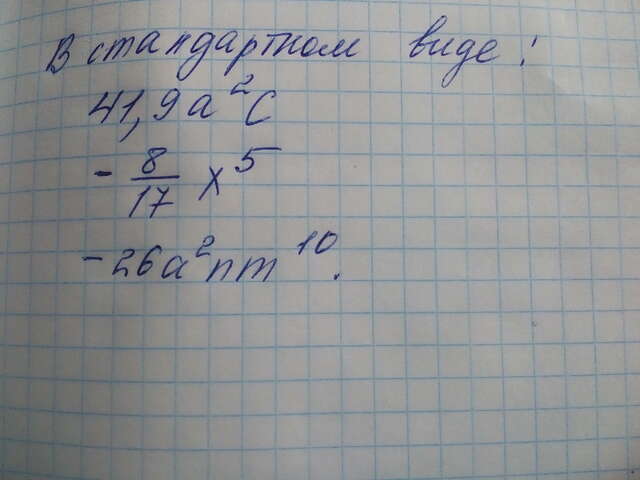 В стандартном виде:
41,9a²c
- 8/17 x⁵
-26a²nm¹⁰.